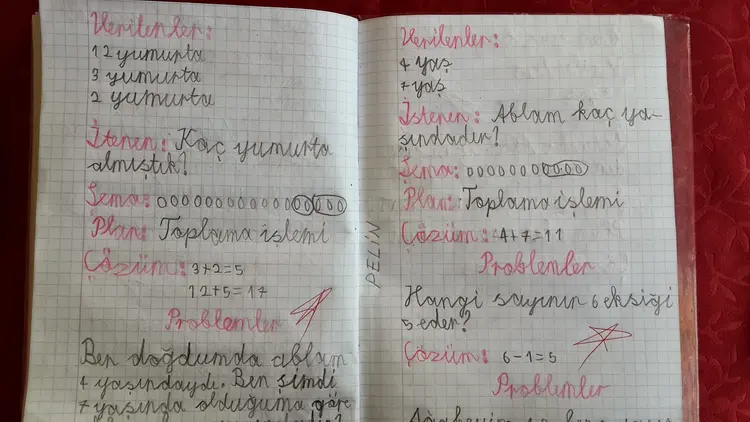 Verilenler:
12 yumurta
3 yumurta
2 yumurta
İtenen: Kaç yumurta
almıştık?
Şema: 00000000000000000
Plan: Toplama işlemi
Çözüm: 3+2=5
12+5=17
Problemler
Ben doğdumda ablam
4 yaşındaydı. Ben şimdi
7 yaşında olduğuma göre
PELİN
Verilenler:
4 yaş
7 yaş
İstenen: Ablam kaç ya-
şındadır?
Şema: 00000000000
Plan: Toplama işlemi
Çözüm: 4+7=11
Problemler
Hangi sayının 6 eksiği
5 eder?
Çözüm: 6-1=5
Problemler